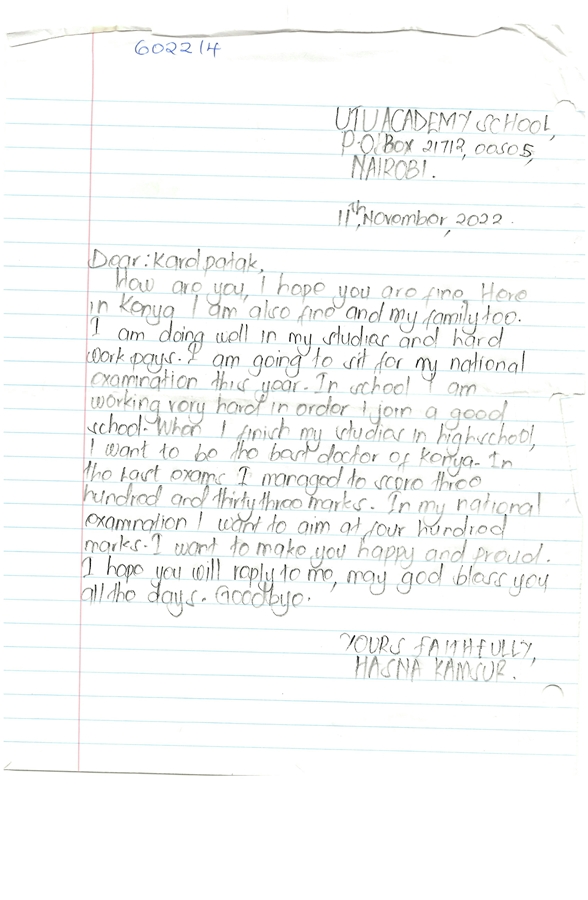 602214
UTU ACADEMY SCHOOL,
P.O. Box 21712, 00505,
NAIROBI.
11th, November, 2022.
Dear: Karol patak,
How are you, I hope you are fine. Here
in Kenya I am also fine and my family too.
I am doing well in my studies and hard
work pays. I am going to sit for my national
examination this year. In school I am
working very hard in order i join a good
school. When I finish my studies in highschool,
I want to be the best doctor of Kenya. In
the Last exams I managed to score three
hundred and thirty three marks. In my national
examnation I want to aim at four hundred
marks. I want to make you happy and proud.
I hope you will reply to me, may god bless you
all the days. Goodbye.
YOURS FAITHFULLY,
HASNA KAMSUR.